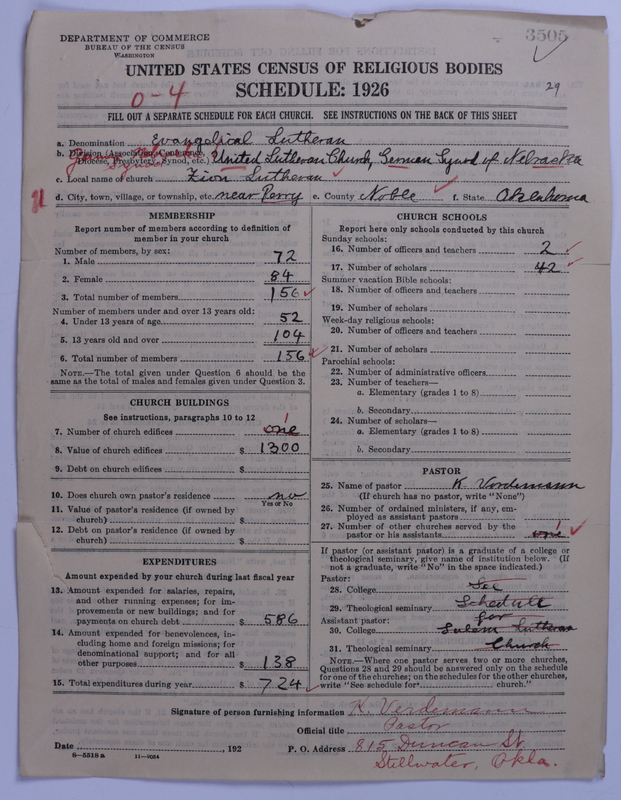 DEPARTMENT OF COMMERCE
BUREAU OF THE CENSUS
WASHINGTON
3505
UNITED STATES CENSUS OF RELIGIOUS BODIES
SCHEDULE: 1926
29
0-4
FILL OUT A SEPARATE SCHEDULE FOR EACH CHURCH. SEE INSTRUCTIONS ON THE BACK OF THIS SHEET
a. Denomination Evangelical Lutheran
b. Division (Association, Conference, Diocese, Presbytery, Synod, etc.) United Lutheran Church, German Synod of Nebraska
c. Local name of church Zion Lutheran
d. City, town, village, or township, etc. near Perry e. County Noble f. State Oklahoma
MEMBERSHIP
Report number of members according to definition of
member in your church
Number of members, by sex:
1. Male 72
2. Female 84
3. Total number of members 156
Number of members under and over 13 years old:
4. Under 13 years of age 52
5. 13 years old and over 104
6. Total number of members 156
NOTE.—The total given under Question 6 should be
same as the total of males and females given under Question 3.
CHURCH BUILDINGS
See instructions, paragraphs 10 to 12
1
7. Number of church edifices one
8. Value of church edifices $ 1300
9. Debt on church edifices $
10. Does church own pastor's residence no
Yes or No
11. Value of pastor's residence (if owned by
church) $
12. Debt on pastor's residence (if owned by
church) $
EXPENDITURES
Amount expended by your church during last fiscal year
13. Amount expended for salaries, repairs,
and other running expenses; for im-
provements or new buildings; and for
payments on church debt $ 586
14. Amount expended for benevolences, in-
cluding home and foreign missions; for
denominational support; and for all
other purposes $ 138
15. Total expenditures during year $ 724
CHURCH SCHOOLS
Report here only schools conducted by this church
Sunday schools:
16. Number of officers and teachers 2
17. Number of scholars 42
Summer vacation Bible schools:
18. Number of officers and teachers
19. Number of scholars
Week-day religious schools:
20. Number of officers and teachers
21. Number of scholars
Parochial schools:
22. Number of administrative officers
23. Number of teachers—
a. Elementary (grades 1 to 8)
b. Secondary
24. Number of scholars—
a. Elementary (grades 1 to 8)
b. Secondary
PASTOR
25. Name of pastor K. Vordemann
(If church has no pastor, write "None")
26. Number of ordained ministers, if any, em-
ployed as assistant pastors
27. Number of other churches served by the
pastor or his assistants one 1
If pastor (or assistant pastor) is a graduate of a college or
theological seminary, give name of institution below. (If
not a graduate, write "No" in the space indicated.)
Pastor:
28. College See
29. Theological seminary Schedule
Assistant pastor: for
30. College Salem Lutheran
31. Theological seminary Church
NOTE.—Where one pastor serves two or more churches,
Questions 28 and 29 should be answered only on the schedule
for one of the churches; on the schedules for the other churches,
write "See schedule for church."
Signature of person furnishing information K. Verdemann
Official title Pastor
Date , 192 P. O. Address 815 Duncan St.
Stillwater, Okla.
8—5518 a 11—9054